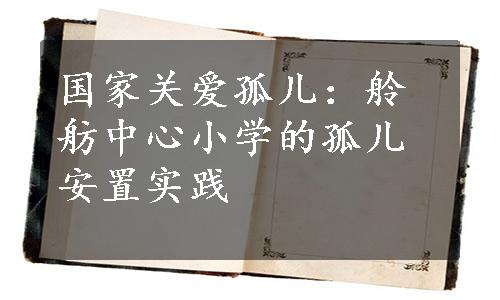 国家关爱孤儿：舲
舫中心小学的孤儿
安置实践